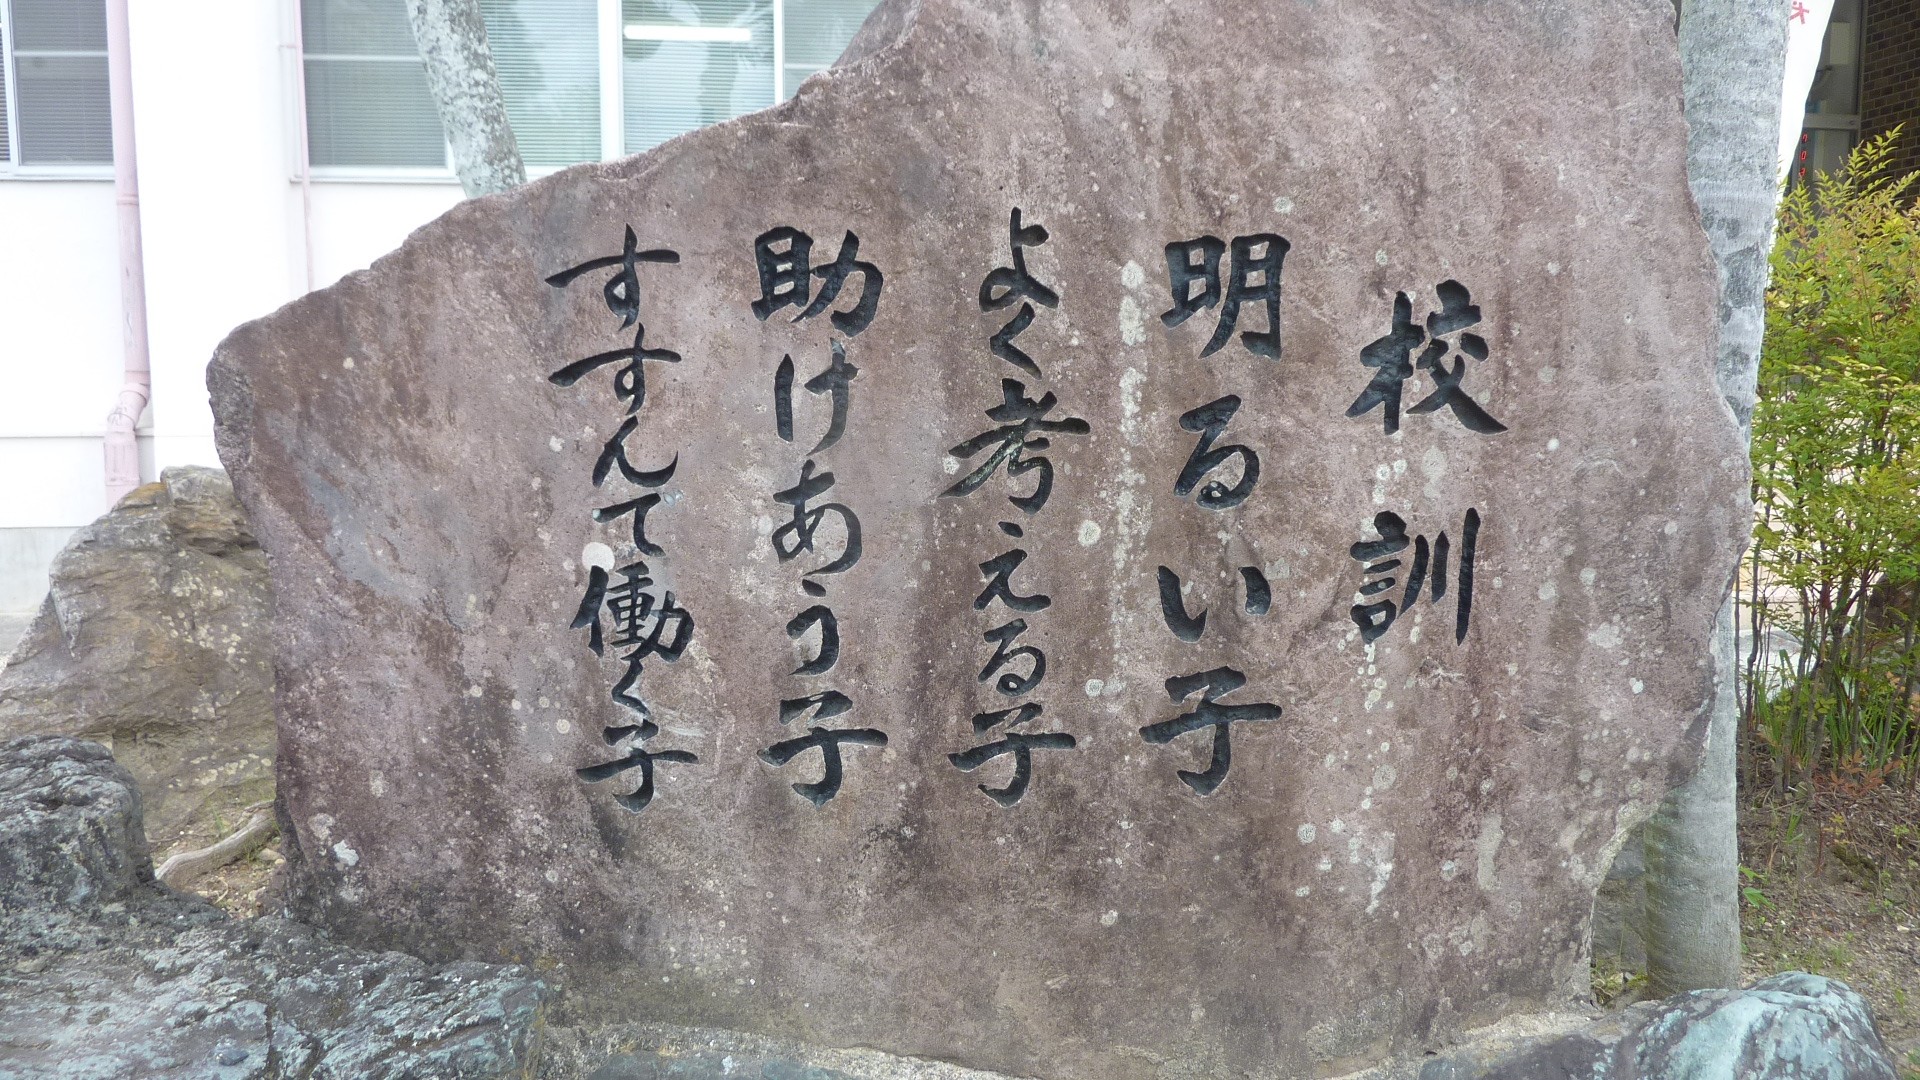 校訓
明るい子
よく考える子
助けあう子
すすんで働く子